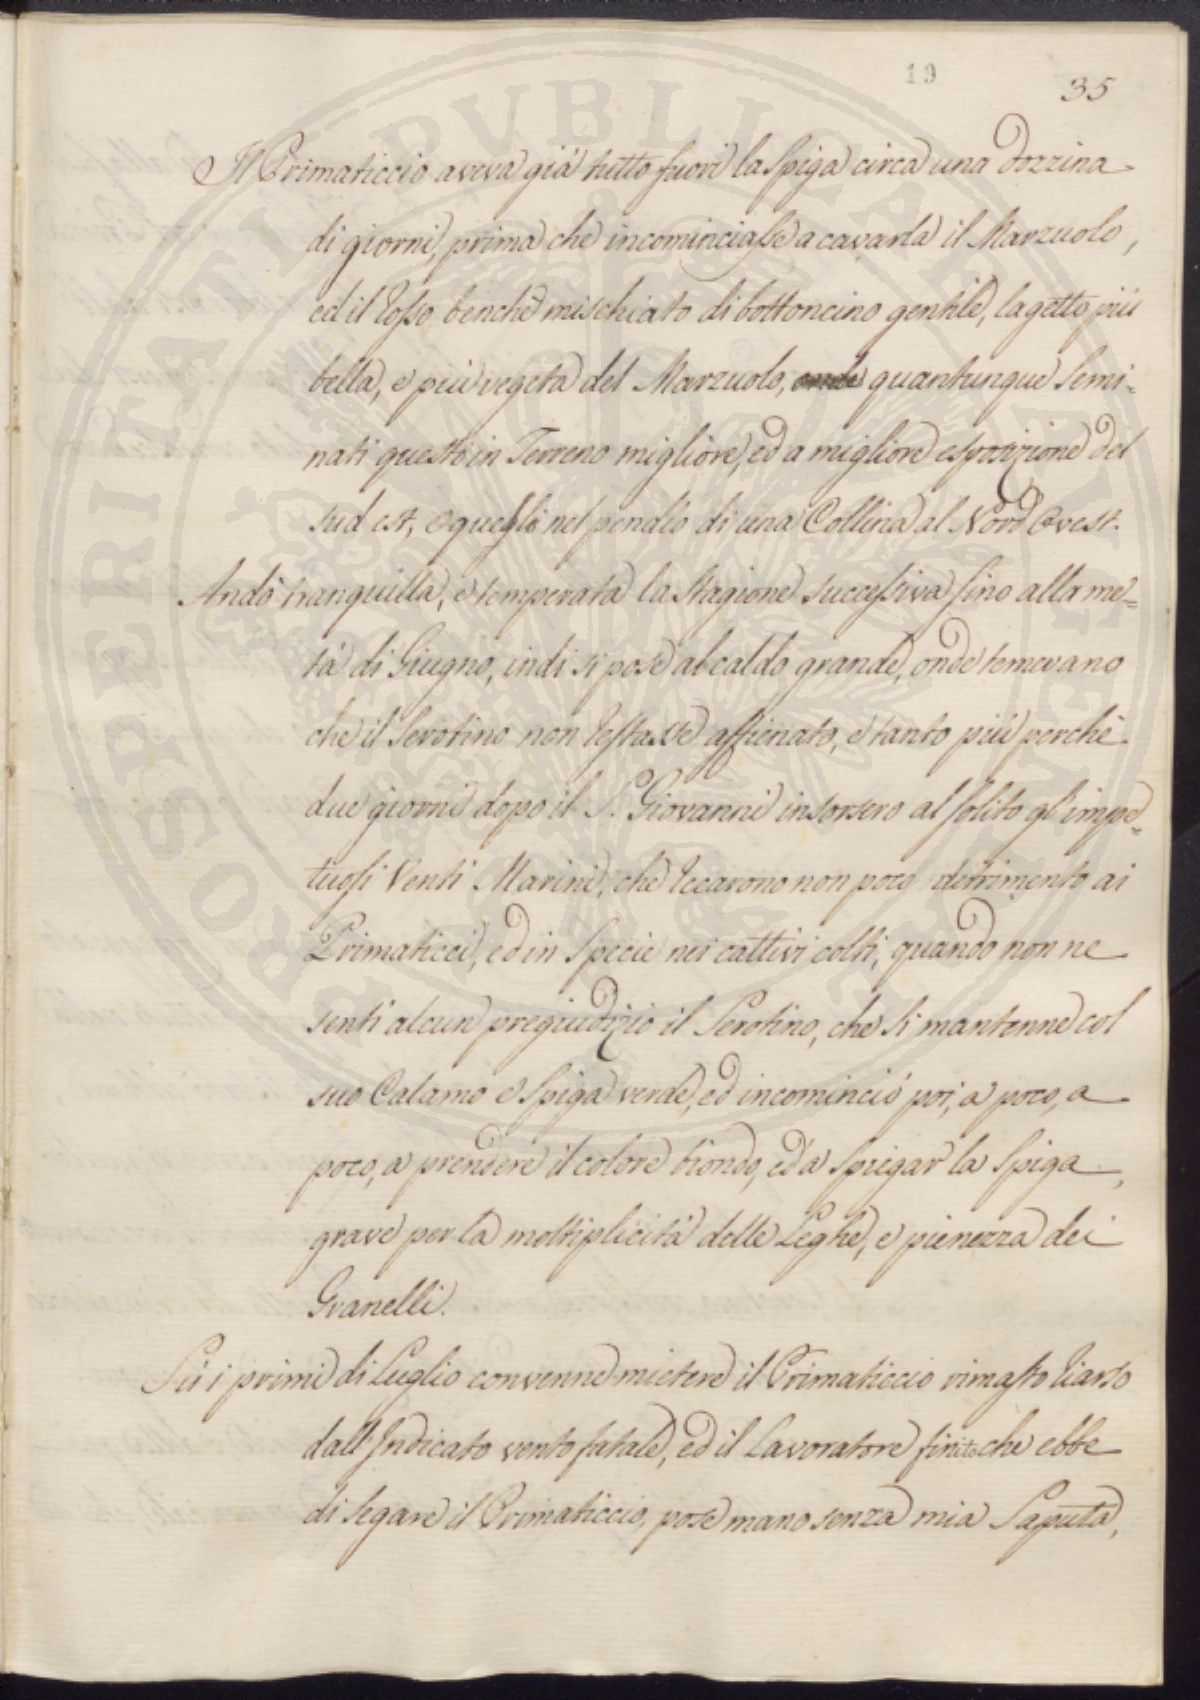 19
35
Il Primaticcio aveva già tutto fuori la Spiga circa una dozzina
di giorni, prima che incominciasse a cavarla il Marzuolo,
ed il Rosso, benchè mischiato di bottoncino gentile, la gettò più
bella, e più vegeta del Marzuolo, quantunque Semi-
nati questo in Terreno migliore, ed a migliore esposizione del
sud est, e quello nel pendio di una Collina al Nord Ovest.
Andò tranquilla, e temperata la Stagione successiva fino alla me=
tà di Giugno, indi si pose al caldo grande, onde temevano
che il Serotino non restasse affienato, e tanto più perchè
due giorni dopo il S. Giovanni insorsero al solito gl'impe=
tuosi Venti Marini, che recarono non poco detrimento ai
Primaticci, ed in Specie nei cattivi colti, quando non ne
senti alcun pregiudizio il Serotino, che si mantenne col
suo Calamo e Spiga verde, ed incominciò poi, a poco, a
poco, a prendere il colore biondo, ed a spiegar la Spiga,
grave per la moltiplicità delle Leghe, e pienezza dei
Granelli.
Sù i primi di Luglio convenne mietere il Primaticcio rimasto riarso
dall Indicato vento fatale, ed il Lavoratore finito che ebbe
di segare il Primaticcio, pose mano senza mia Saputa,
PROSPERITATI PUBLICAE AUGENDAE